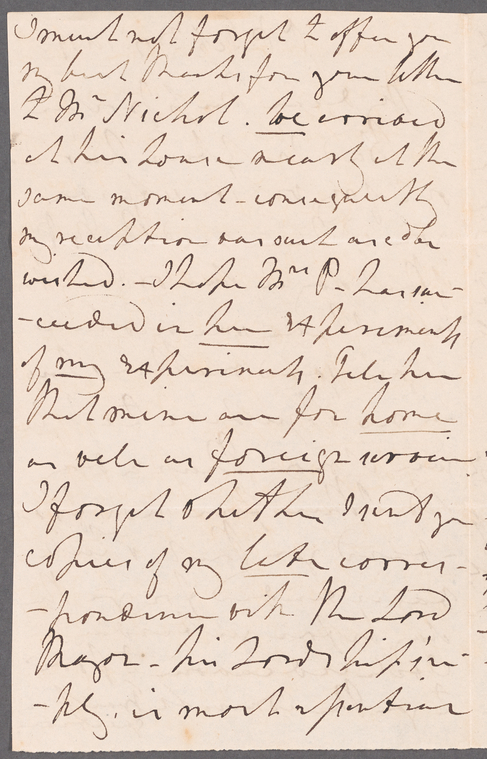 I must not forget to offer you
my best thanks for your letter
to Mr Nichol. We arrived
at his house nearly at the
same moment - consequently
my reception was such as cd be
wished. - I hope Mrs P - has suc-
-ceeded in her experiments
of my experiments. Tell her
that mine are for home
as well as foreign service
I forget whether I sent you
copies of my late corres-
-pondence with the Lord
Mayor - his Lordship's re-
-ply. is most